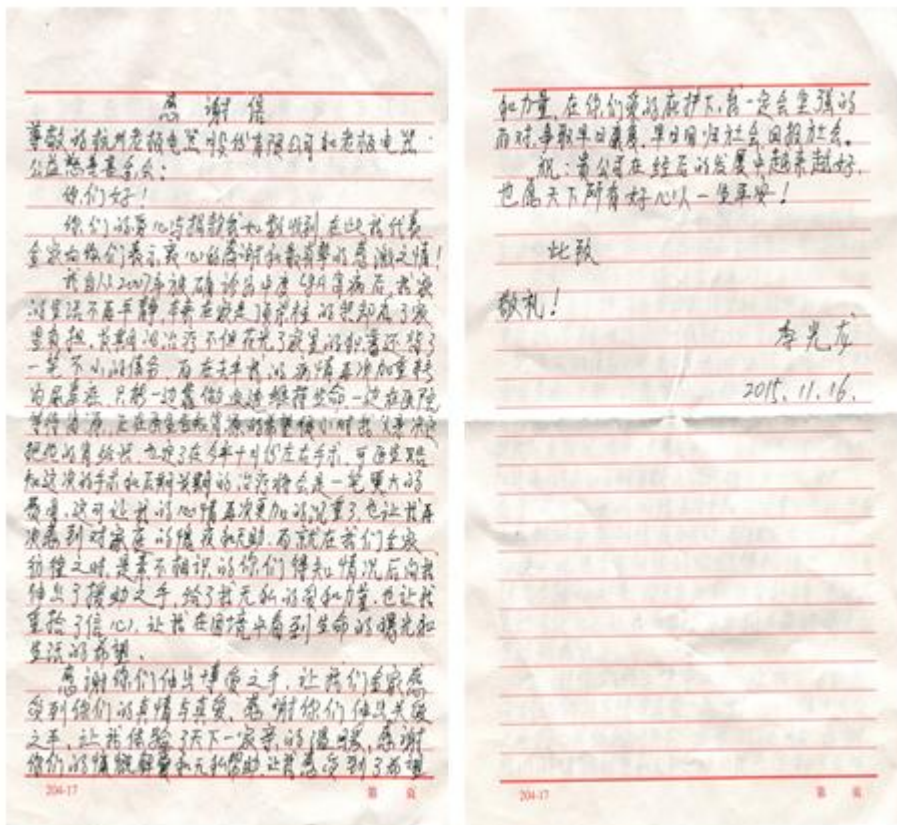 感谢信
尊敬的杭州老板电器股份有限公司和老板电器
公益慈善基金会:
你们好!
你们的爱心与捐款我已收到,在此我代表
全家向你们表示衷心的感谢和最真挚的感激之情!
我自从2007年被确诊为中度病后,我家
的生活不再平静,本来在家是顶梁柱的我却成了家
里负担,长期的治疗不但花光了家里的积蓄还借了
一笔不小的债务,而在去年我的病情再次加重转
为尿毒症,只能一边靠做血透维持生命,一边在医院
等待肾源,正在
把他的肾给我,也定了在今年十月份左右手术,可
和这次的手术和后期长期的治疗将会是一笔更大的
费用,这可让我的心情再次更加的沉重了,也让我再
次感到对家庭的愧疚和无助,而就在我们全家
彷徨之时,是素不相识的你们得知情况后向我
伸出了援助之手,给了我无私的爱和力量,也让我
重拾了信心,让我在困境中看到生命的曙光和
生活的希望。
感谢你们伸出博爱之手,让我们全家感
受到你们的真情与真爱,感谢你们伸出关爱
之手,让我体验了天下一家亲的温暖,感谢
你们的慷慨解囊和无私帮助,让我感受到了希望
和力量,在你们爱的庇护下,我一定会坚强的
面对,争取早日康复,早日回归社会,回报社会。
祝:贵公司在经后的发展中越来越好,
也愿天下所有好心人一生平安!
此致
敬礼!
李光
2015.11.16.
204-17
第 页
204-17
第 页